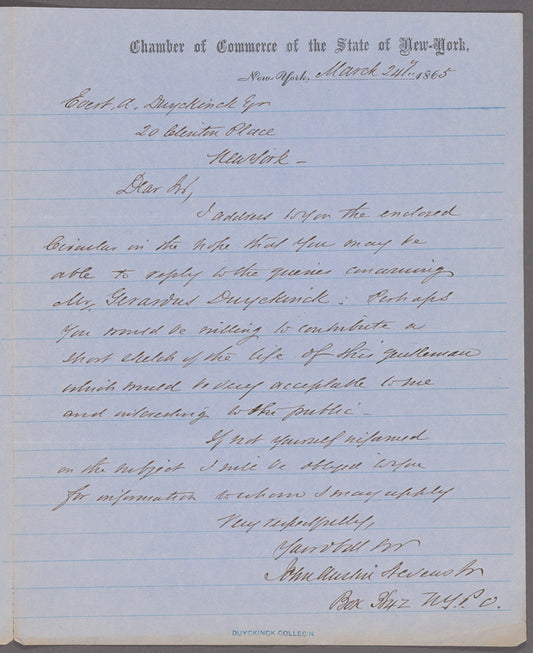 Chamber of Commerce of the State of New-York,
New-York, March 24th 1865
Evert A. Duyckinck Esqr
20 Clinton Place
New York -
Dear Sir,
I address to you the enclosed
Circular in the hope that you may be
able to reply to the queries concerning
Mr. Gerardus Duyckinck. Perhaps
you would be willing to contribute a
short sketch of the life of this gentleman
which would be very acceptable to me
and interesting to the public -
If not yourself informed
on the subject I will be obliged to you
for information to whom I may apply
Very respectfully,
Your Obt Svr
John Austin Stevens Jr
Box N.Y.P.O.
DUYCKINCK COLLEC'N.